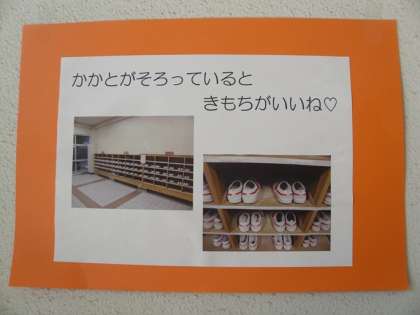 かかとがそろっていると
きもちがいいね♡